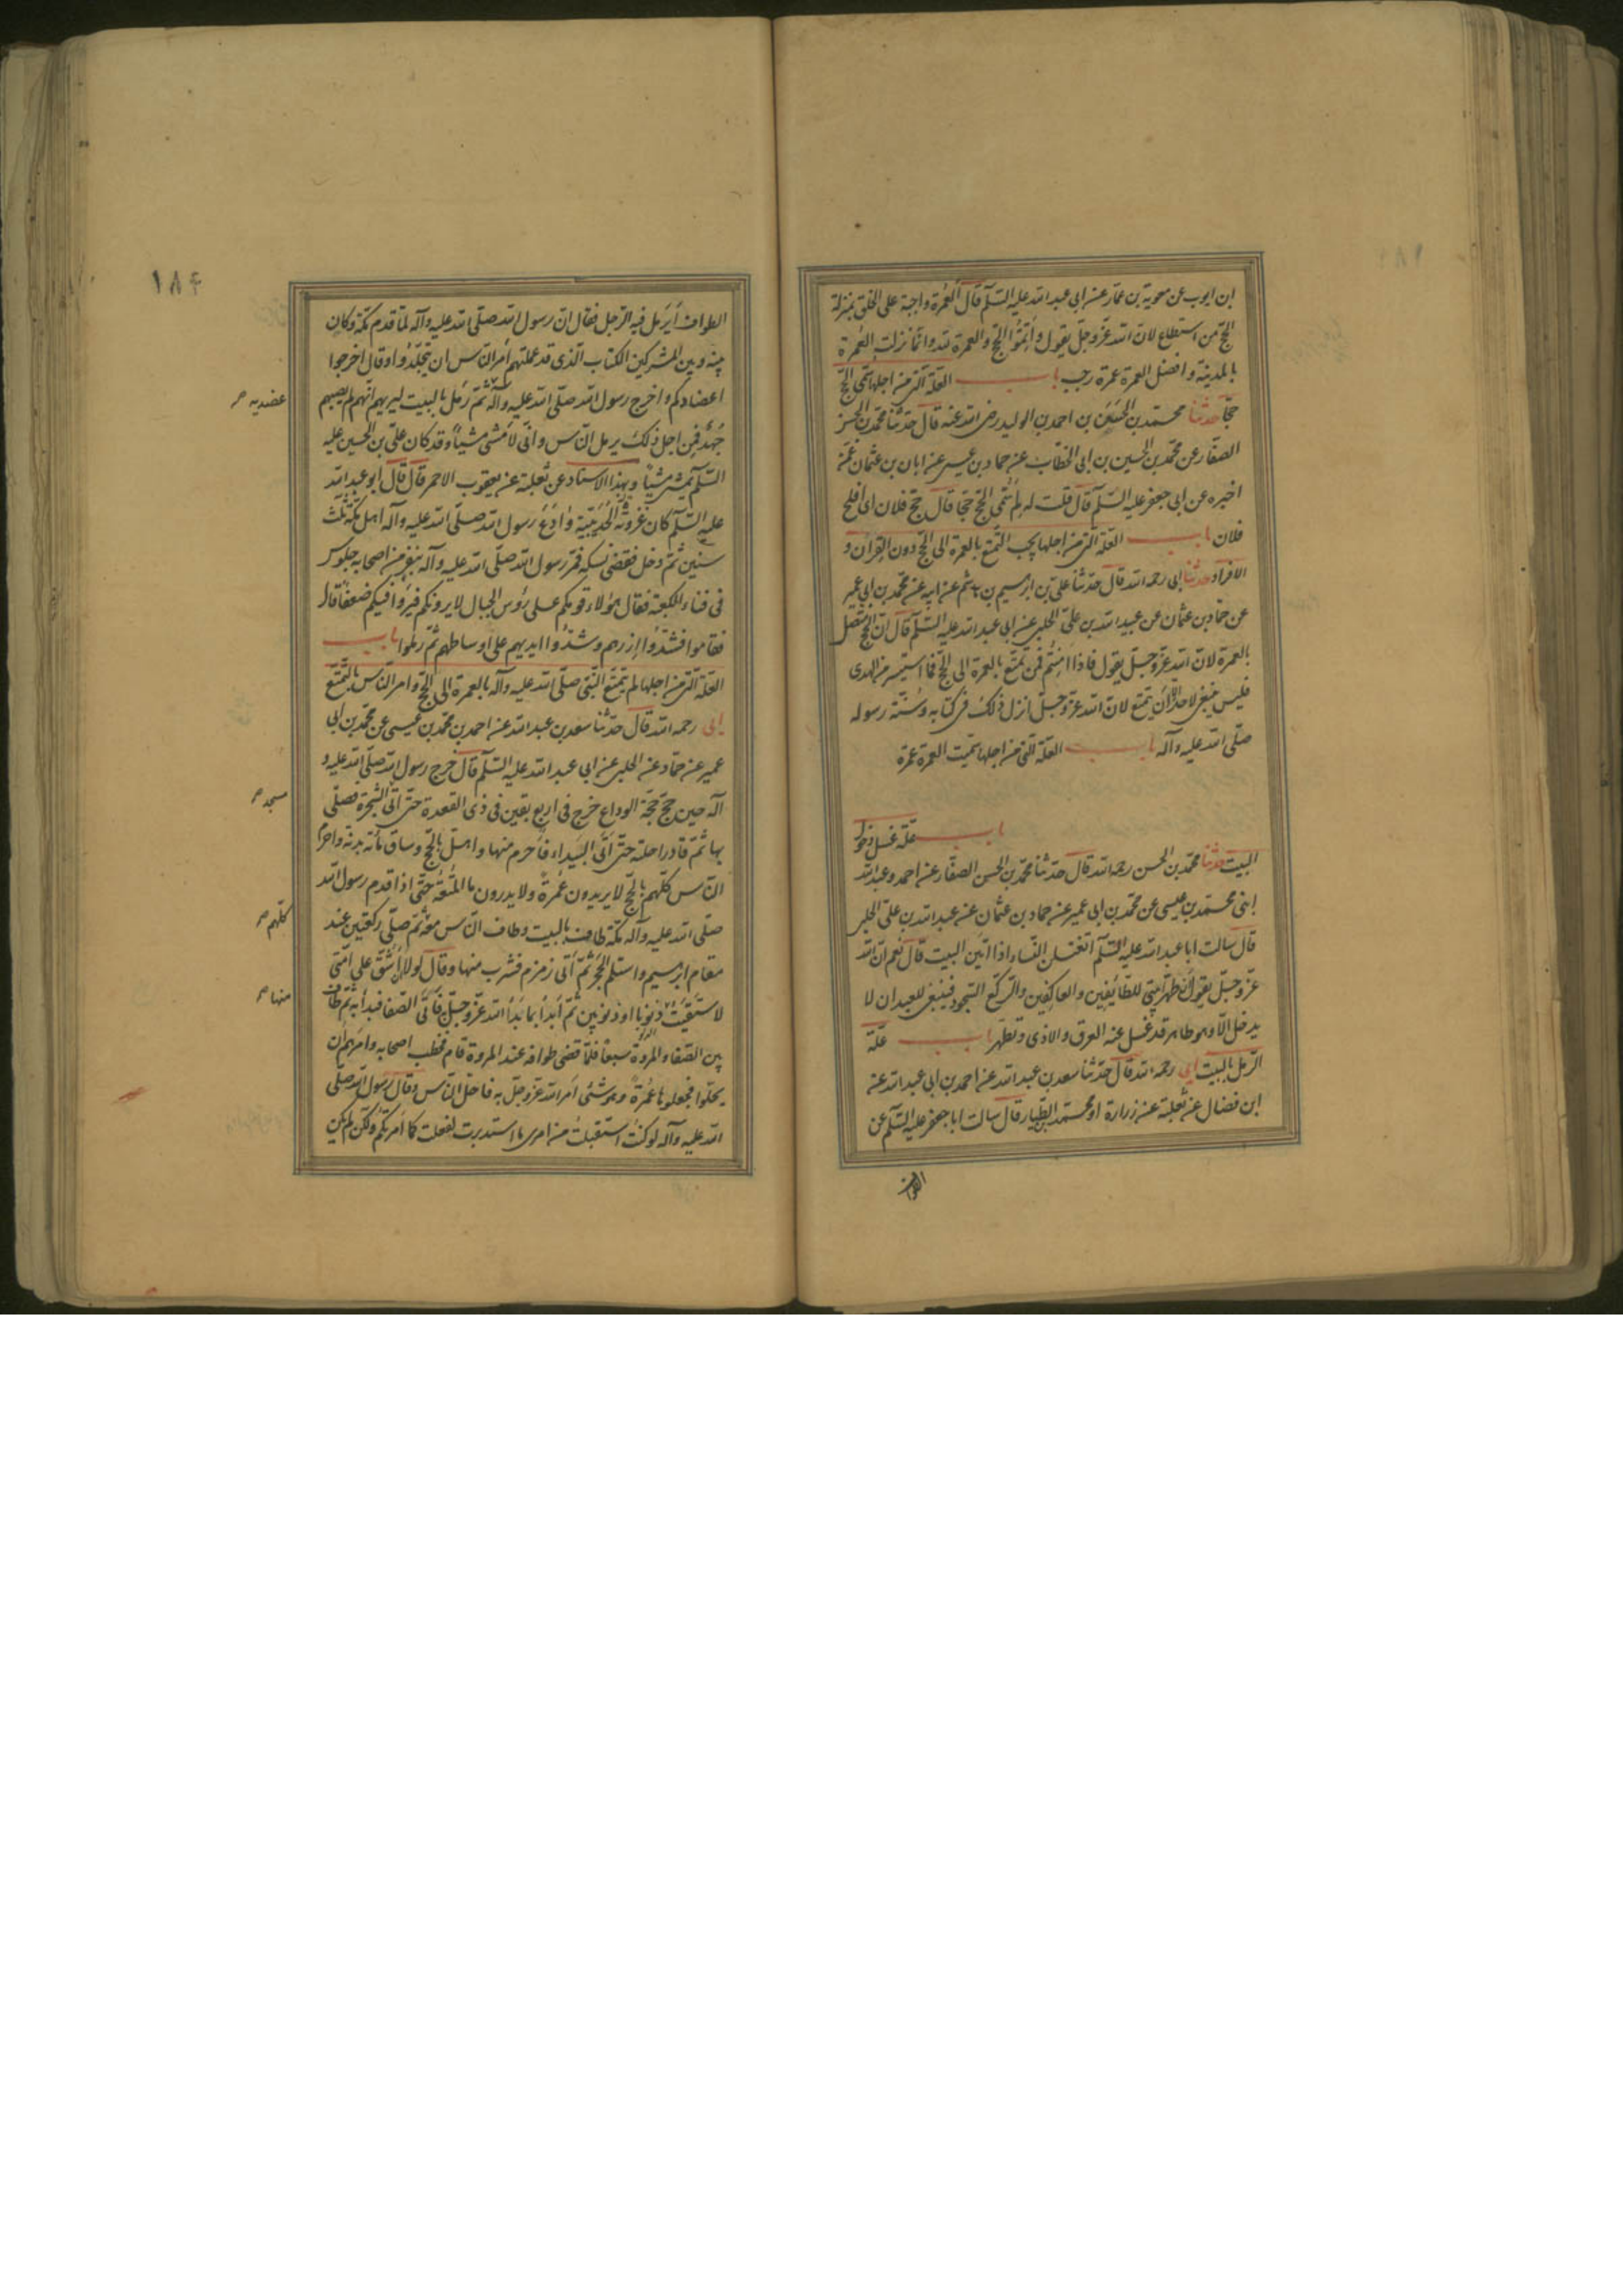 ابن ايوب عن معوية بن عمار عن ابى عبد الله عليه السلم قال العُمرة واجبة على الخلق بمنزلة
الحج من استطاع لان الله عزّ وجلّ يقول واَتِمّوا الحج والعمرة لله وانما نزلت العُمرة
بالمدينة وافضل العمرة عمرة رجب باب العلة التى من اجلها سمّى الحجّ
حجّا حدثنا محمد بن الحسَن بن احمد بن الوليد رضى الله عنه قال حدثنا محمد بن الحسن
الصفّار عن محمد بن الحسين بن ابى الخطّاب عن حماد بن عيسى عن ابان بن عثمان عمّن
اخبره عن ابى جعفر عليه السلم قال قلت له لِمَ سُمّى الحجّ حجّا قال حجّ فلان اى افلح
فلان باب العلة التى من اجلها يجب التمتع بالعمرة الى الحجّ دون القِران و
الافراد حدثنا ابى رحمه الله قال حدثنا على بن ابرهيم بن هاشم عن ابيه عن محمد بن ابى عمير
عن حمّاد بن عثمان عن عبيد الله بن علىّ الحلبى عن ابى عبد الله عليه السلم قال انّ الحج متصل
بالعمرة لانّ الله عزّ وجلّ يقول فاذا اَمِنتُم فمَن تمتّع بالعمرة الى الحجّ فما استيسر من الهدى
فليس ينبغى لاحد اِلّا اَن يتمتع لانّ الله عزّ وجلّ انزل ذلك فى كتابه وسُنّة رسوله
صلّى الله عليه وآله باب العلة التى من اجلها سمّيت العمرة عمرة
باب علّة غسل دخول
البيت حدثنا محمد بن الحسن رحمه الله قال حدثنا محمد بن الحسن الصفّار عن احمد وعبد الله
ابنى محمد بن عيسى عن محمد بن ابى عمير عن حماد بن عثمان عن عبيد الله بن على الحلبى
قال سالت ابا عبد الله عليه السلم اتغتسلن النّساء اذا اتين البيت قال نعم انّ الله
عزّ وجلّ يقول اَن طهّرا بيتى للطّائِفين والعاكِفين والرّكّع السّجود فينبغى للعبد ان لا
يدخل الّا وهو طاهر قد غسل عنه العرق والاذى وتطهّر باب علّة
الرّمل بالبيت ابى رحمه الله قال حدّثنا سعد بن عبد الله عن احمد بن ابى عبد الله عن
ابن فضال عن ثعلبة عن زرارة او محمد الطّيار قال سالت ابا جعفر عليه السّلم عن
الطواف
١٨٤
الطواف اَيَرمَل فيه الرّجل فقال انّ رسول الله صلّى الله عليه وآله لمّا قدم مكّة وكان
بينه وبين المشركين الكتاب الّذى قد علمتم اَمَر النّاس ان يتجلّدُوا وقال اخرجوا
اعضادكم واخرج رسول الله صلّى الله عليه وآله ثمّ رَمَل بالبيت ليريهم انّهم لم يصبهم
جُهد فمن اجل ذلك يرمل النّاس وانّى لاَمشى مشياً وقد كان علىّ بن الحسين عليه
السّلم يمشى مشياً وبهذا الاسناد عن ثعلبة عن يعقوب الاحمر قال قال ابو عبد الله
عليه السّلم كان غزوة الحُدَيبيّة وادَعَ رسول الله صلّى الله عليه وآله اهل مكّة ثلث
سنين ثمّ دخل فقضى نسكه فمرّ رسول الله صلّى الله عليه وآله بنفر من اصحابه جلوس
فى فناء الكعبة فقال هؤلاء قومكم على رؤس الجبال لا يرونكم فيَرَوا فيكم ضعفا قال
فقاموا فشدّوا اُزرهم وشدّوا ايديهم على اوساطهم ثمّ رملوا باب
العلة التى من اجلها لم يتمتّع النّبى صلّى الله عليه وآله بالعمرة الى الحجّ وامر النّاس بالتّمتّع
ابى رحمه الله قال حدّثنا سعد بن عبد الله عن احمد بن محمد بن عيسى عن محمد بن ابى
عمير عن حمّاد عن الحلبى عن ابى عبد الله عليه السّلم قال خرج رسول الله صلّى الله عليه و
آله حين حجّ حجّة الوداع خرج فى اربع بقين فى ذى القعدة حتّى اتى الشّجرة فصلّى
بها ثمّ قاد راحلته حتّى اَتَى البيداء فاَحرم منها واهلّ بالحجّ وساق مائة بدنة واحرم
النّاس كلّهم بالحجّ لا يريدون عُمرةً ولا يدرون ما المُتعة حتّى اذا قدم رسول الله
صلّى الله عليه وآله مكّة طاف بالبيت وطاف النّاس معه ثمّ صلّى ركعتين عند
مقام ابرهيم واستلم الحَجَر ثمّ اَتى زمزم فشرب منها وقال لولا اَن اَشُقّ على امّتى
لاستَقَيتُ ذنوبا او ذنوبين ثمّ اَبدأ بما بَدَأ الله عزّ وجلّ فاَتَى الصّفا فبدأ به ثمّ طاف
بين الصّفا والمروَة سبعًا فلمّا قضى طوافه عند المروة قام فخطب اصحابه وامَرهم اَن
يحلّوا فيجعلوها عُمرة وهو شئ اَمَر الله عزّ وجلّ به فاحلّ النّاس وقال رسول الله صلّى
الله عليه وآله لو كنتُ استقبلتُ من امرى ما استدبرت لفعلت كما اَمَرتكُم ولكن لم يكن
عضديه
مسجد
كلّهم
منها